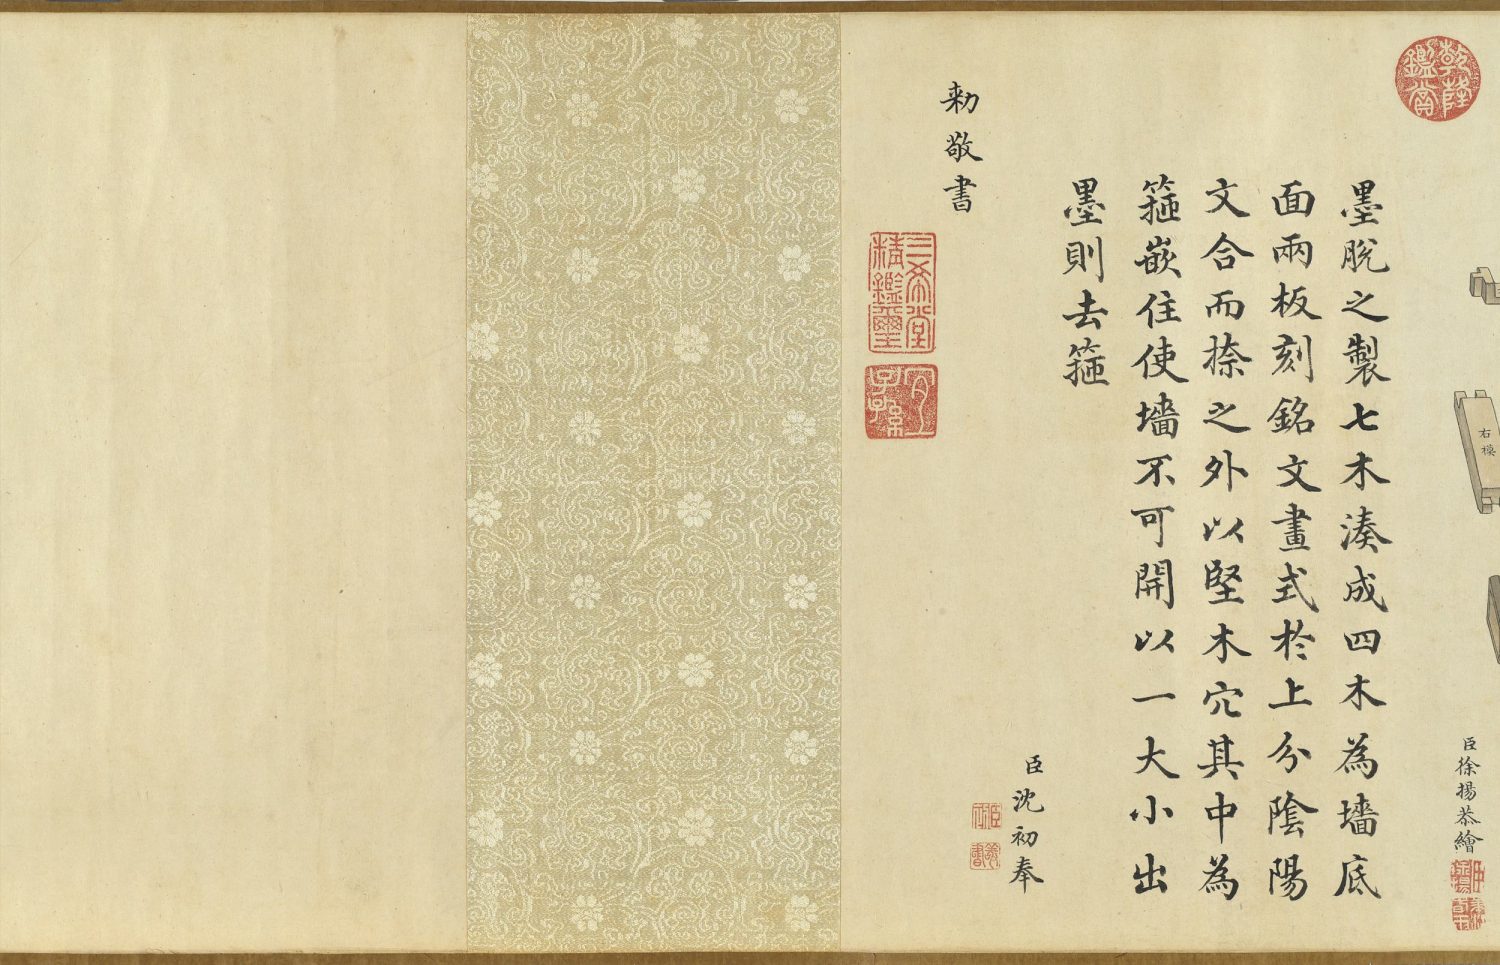 乾隆鑑賞
右模
臣徐揚恭繪
墨脫之製七木湊成四木為墻底
面兩板刻銘文畫式於上分陰陽
文合而捺之外以堅木穴其中為
箍嵌住使墻不可開以一大小出
墨則去箍
臣沈初奉
勅敬書
三希堂精鑑璽
宜子孫